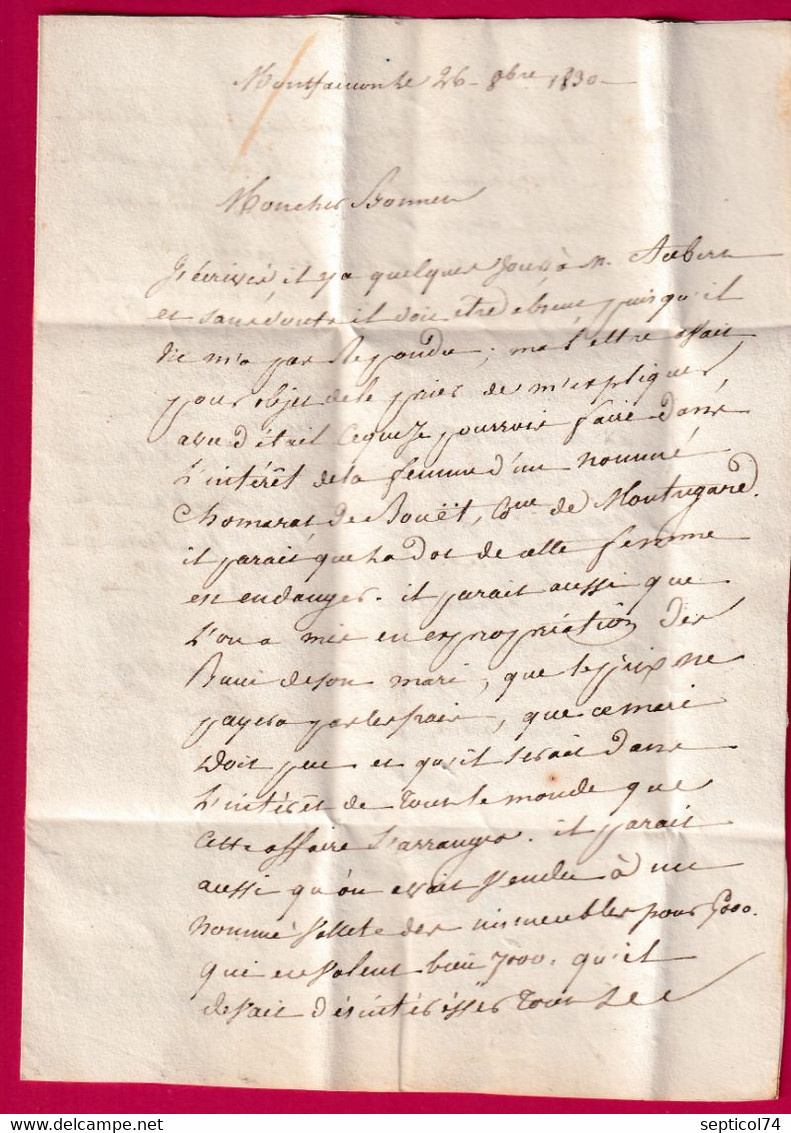 Montfaucon le 26 - 8bre 1830 -
Mon cher Bonnet
J'écrivis il y a quelques jours à M. Aubert
et sans doute il doit être absent puisqu'il
ne m'a pas repondu ; ma lettre avait
pour objet de le prier de m'expliquer
avec détail ce que je pourrois faire dans
l'intérêt de la femme d'un nommé
Chomarat de Bouët, Cne de Montregard.
il parait que la dot de cette femme
est en danger. il parait aussi que
l'on a mis en expropriation des
Biens de son mari, que le prix ne
payera pas les frais, que ce mari
doit peu et qu'il serait dans
l'intérêt de tout le monde que
cette affaire s'arrangea. il parait
aussi qu'on avait vendu à un
nommé des immeubles pour 5000.
qui en valent bien 7000. qu'il
devait désintéresser tout le
septicol74